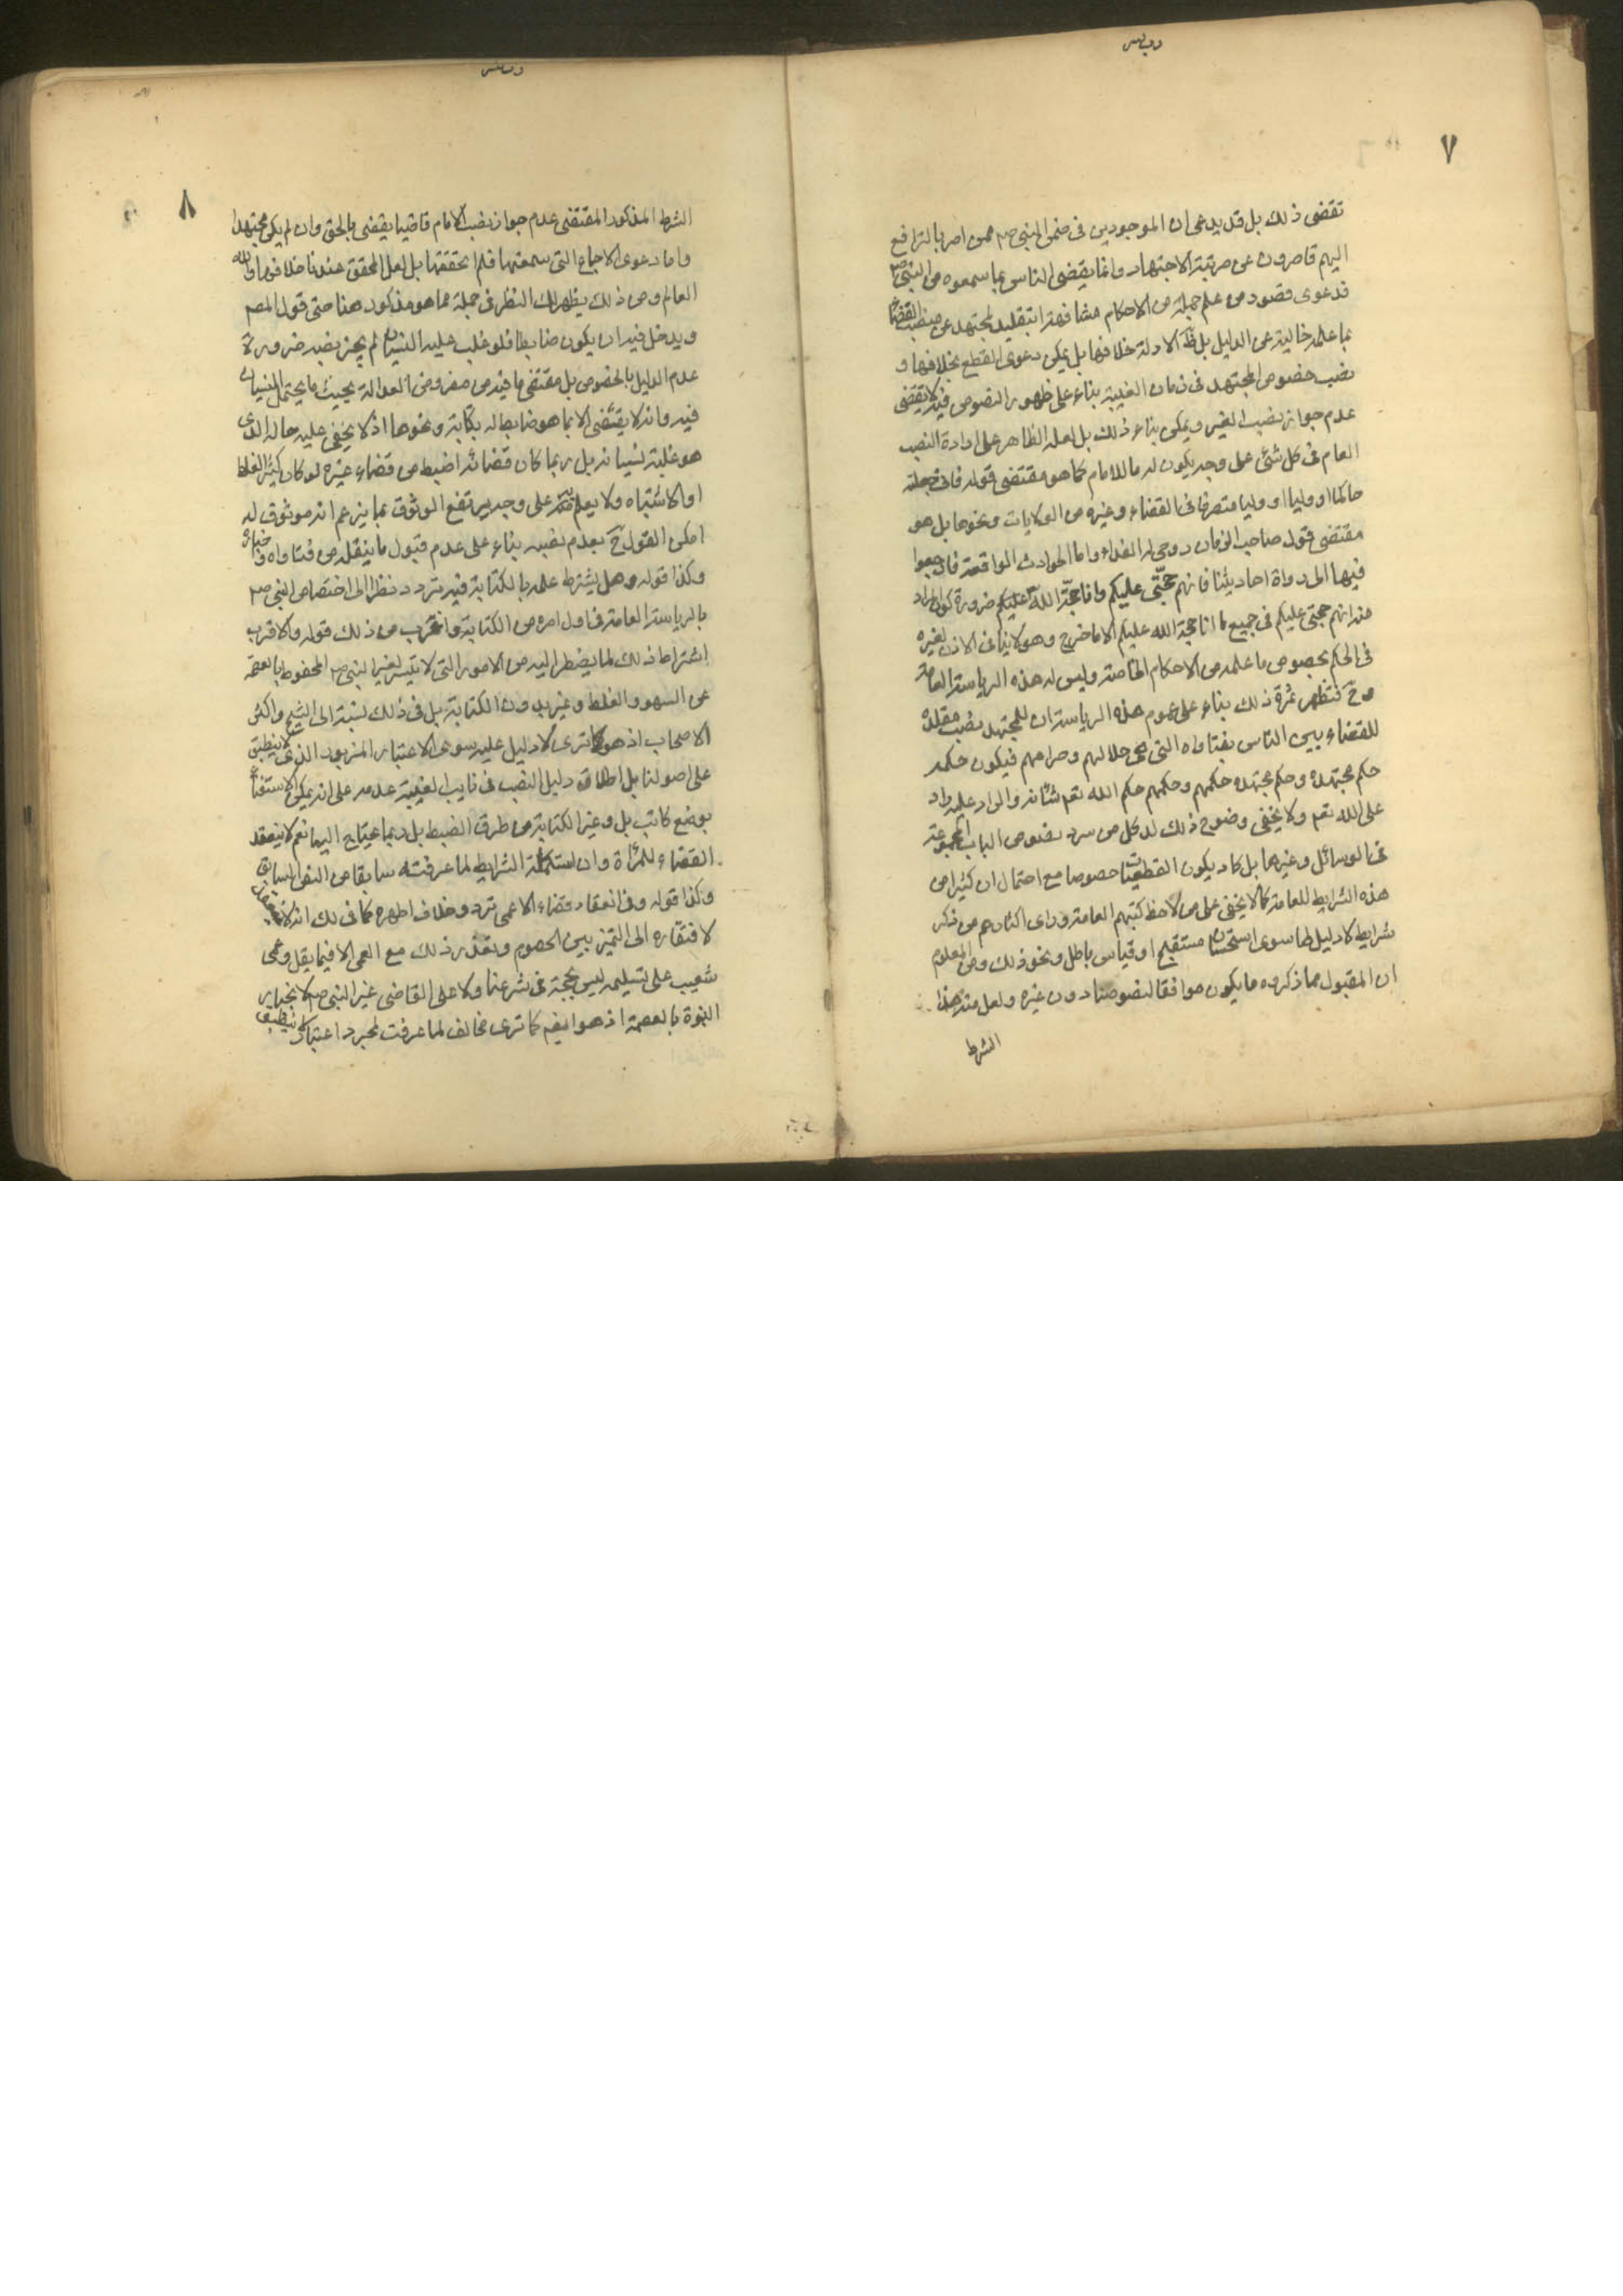 ٧
تقضى ذلك بل قد يدعى ان الموجودين فى زمن النبى ص ممن امر بالترافع
اليهم قاصرون عن مرتبة الاجتهاد وانما يقضى الناس بما سمعوه من النبى ص
فدعوى قصور من علم جملة من الاحكام مشافهة او بتقليد لمجتهد عن منصب القضاء
بما علمه خالية عن الدليل بل ظ الادلة خلافها بل يمكن دعوى القطع بخلافها و
نصب خصوص المجتهد فى زمان الغيبة بناء على ظهور النصوص فيه لا يقتضى
عدم جواز نصب الغير ويمكن بناء ذلك بل لعله الظاهر على ارادة النصب
العام فى كل شئ على وجه يكون له ما للامام كما هو مقتضى قوله فانى جعلته
حاكما او وليا متصرفا فى القضاء وغيره من الولايات ونحوها بل هو
مقتضى قول صاحب الزمان روحى له الفداء واما الحوادث الواقعة فارجعوا
فيها الى رواة احاديثنا فانهم حجتى عليكم وانا حجة الله عليكم ضرورة كون المراد
منه انهم حجتى عليكم فى جميع ما انا حجة الله عليكم الا ما خرج وهو لا ينافى الاذن لغيره
فى الحكم بخصوص ما علمه من الاحكام الخاصة وليس له هذه الرياسة العامة
وح فتظهر ثمرة ذلك بناء على عموم هذه الرياسة ان للمجتهد نصب مقلده
للقضاء بين الناس بفتاواه التى هى حلالهم وحرامهم فيكون حكمه
حكم مجتهده وحكم مجتهده حكمهم وحكمهم حكم الله تعم شأنه والراد عليه راد
على الله تعم ولا يخفى وضوح ذلك لدى كل من سرد نصوص الباب المجموعة
فى الوسائل وغيرها بل كاد يكون من القطعيات خصوصا مع احتمال ان كثيرا من
هذه الشرايط للعامة كما لا يخفى على من لاحظ كتبهم العامة وراى اكثارهم من ذكر
شرايط لا دليل لها سوى استحسان مستقبح او قياس باطل ونحو ذلك ومن المعلوم
ان المقبول مما ذكروه ما يكون موافقا لنصوصنا دون غيره ولعل منه هذا
الشرط
٨
الشرط المذكور المقتضى عدم جواز نصب الامام قاضيا يقضى بالحق وان لم يكن مجتهدا
واما دعوى الاجماع التى سمعتها فلم نحققها بل لعل المحقق عندنا خلافها والله
العالم ومن ذلك يظهر لك النظر فى جملة مما هو مذكور هنا حتى قول المصم
ويدخل فيه ان يكون ضابطا فلو غلب عليه النسيان لم يجز نصبه ضرورة
عدم الدليل بالخصوص بل مقتضى ما فيه من مفروض العدالة بحيث ما يحتمل النسيان
فيه وانه لا يقضى الا بما هو ضابط له بكتابة ونحوها اذ لا يخفى عليه حاله الذى
هو غلبة نسيانه بل ربما كان قضائه اضبط من قضاء غيره لو كان كثير الغلط
او الاشتباه ولا يعلم به على وجه يرتفع الوثوق بما يزعم انه موثوق له
امكن القول ح بعدم نصبه بناء على عدم قبول ما ينقله من فتاواه واخباره
وكذا قوله وهل يشترط علمه بالكتابة فيه تردد نظرا الى اختصاص النبى ص
بالرياسة العامة فى اول امره من الكتابة واغرب من ذلك قوله والاقرب
اشتراط ذلك لما يضطر اليه من الامور التى لا تتيسر لغير النبى ص المحفوظ بالعصمة
عن السهو والغلط وغيره بدون الكتابة بل فى ذلك نسبته الى الشيخ واكثر
الاصحاب اذ هو كما ترى لا دليل عليه سوى الاعتبار المزبور الذى لا ينطبق
على اصولنا بل اطلاق دليل النصب فى نايب الغيبة عدمه على انه يمكن الاستغناء
بوضع كاتب بل وغير الكتابة من طرق الضبط بل ربما يحتاج اليها نعم لا ينعقد
القضاء للمرأة وان استكملت الشرايط لما عرفته سابقا من النص السابق
وكذا قوله وفى انعقاد قضاء الاعمى تردد وخلاف اظهره كما فى لك انه لا ينعقد
لافتقاره الى التميز بين الخصوم وتعذر ذلك مع العمى الا فيما يقل وعمى
شعيب على تسليمه ليس بحجة فى شرعنا ولا على القاضى غير النبى ص لانجباره
النبوة بالعصمة اذ هو ايضم كما ترى مخالف لما عرفت لمجرد اعتبار لا ينطبق